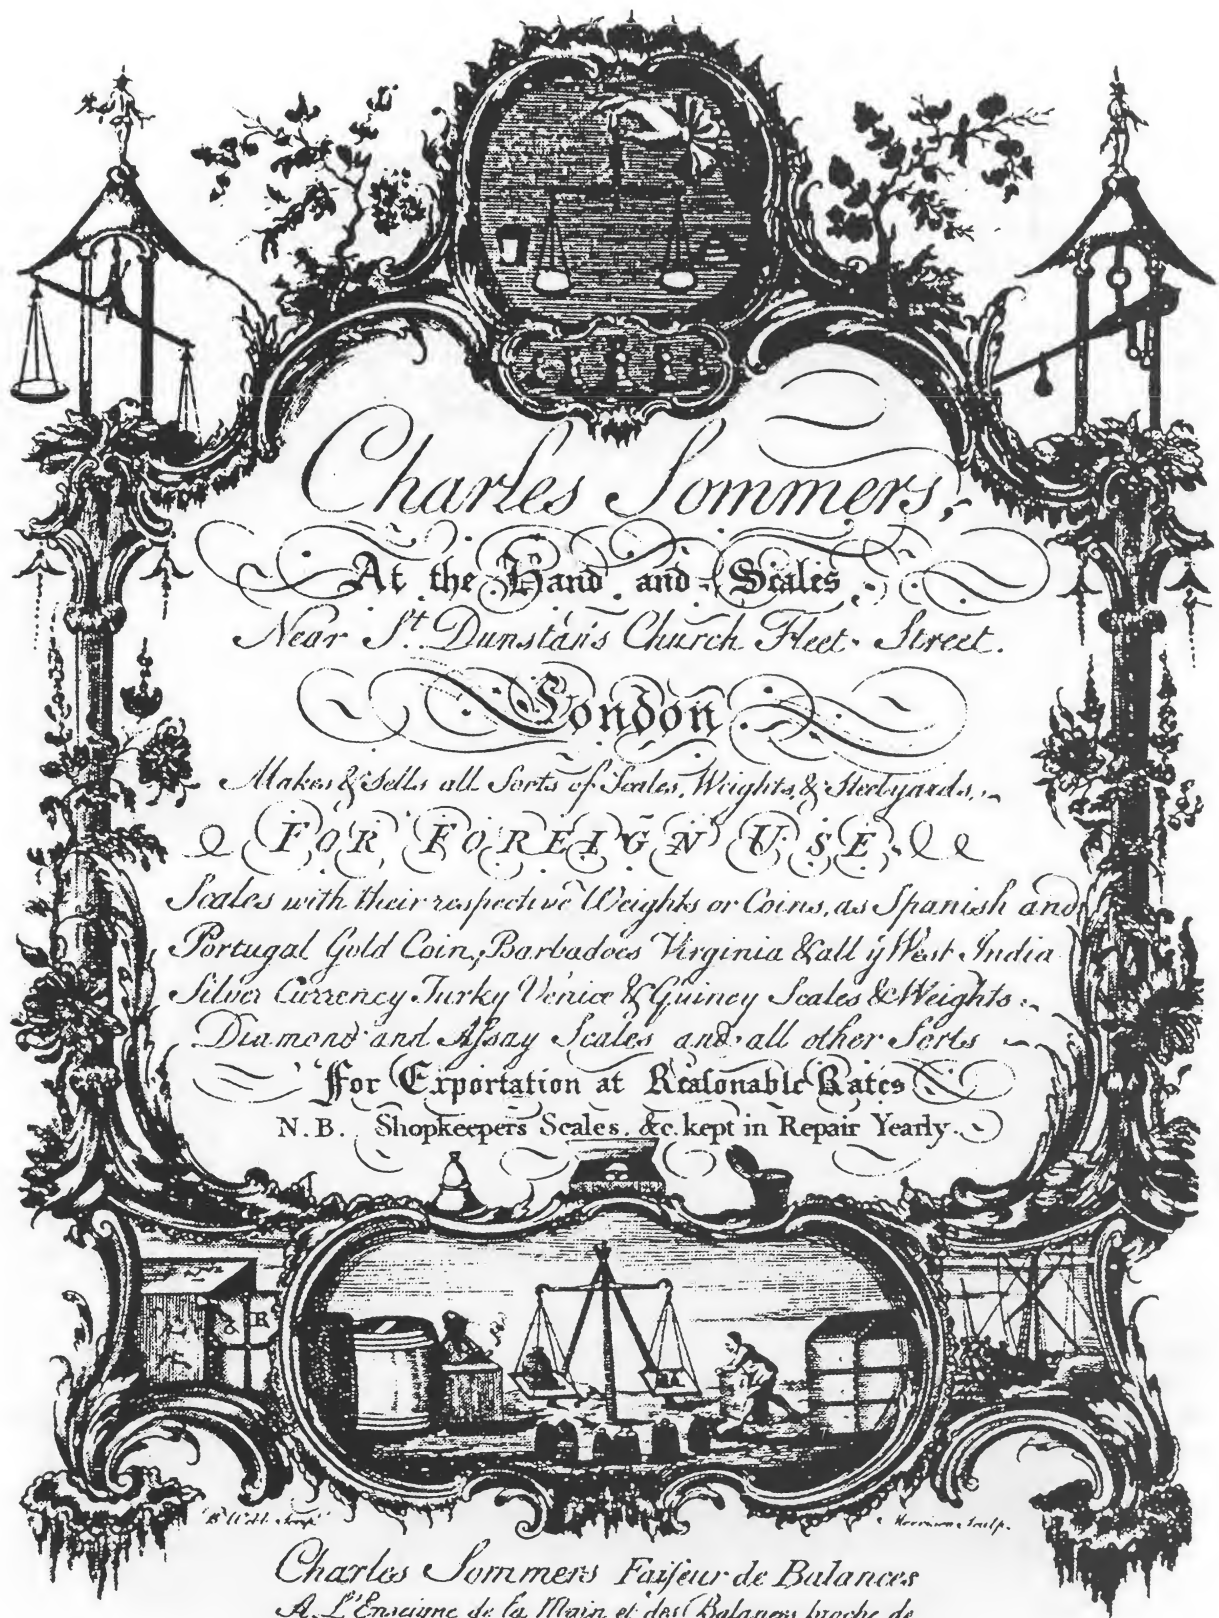 Charles Sommers,
At the Hand and Scales
Near St. Dunstan's Church Fleet-Street.
London
Makes & Sells all Sorts of Scales, Weights, & Steelyards,
FOR FOREIGN USE.
Scales with their respective Weights or Coins, as Spanish and
Portugal Gold Coin, Barbadoes Virginia & all ye West India
Silver Currency Turky Venice & Guiney Scales & Weights:
Diamond and Aſsay Scales and all other Sorts
For Exportation at Reaſonable Rates
N.B. Shopkeepers Scales. &c. kept in Repair Yearly.
R
Sculp.
Charles Sommers Faiſeur de Balances
A L'Enseigne de la Main et des Balances proche de